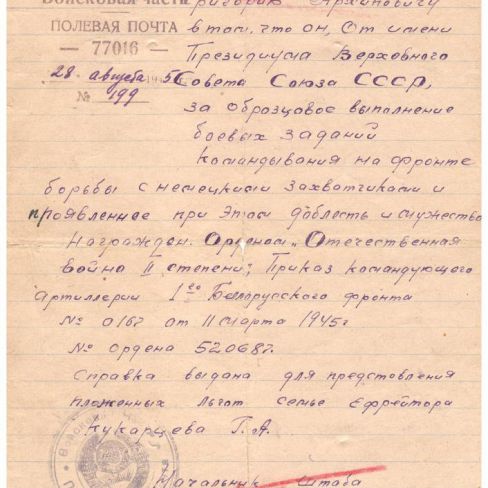 Войсковая часть
ПОЛЕВАЯ ПОЧТА
— 77016 —
28. августа 1945
№ 199
Григорию Архиповичу
в том, что он, от имени
Президиума Верховного
Совета Союза СССР,
за образцовое выполнение
боевых заданий
командывания на фронте
борьбы с немецкими захватчиками и
проявленное при этом доблесть и мужество
Награжден. Орденом „Отечественная
война II степени; Приказ командующего
артиллерии 1го Белорусского фронта
№ 016г от 11 марта 1945г
№ ордена 520687.
Справка выдана для предстовления
пложенных льгот семье Ефрейтора
Кукарцева Г. А.
Начальник штаба